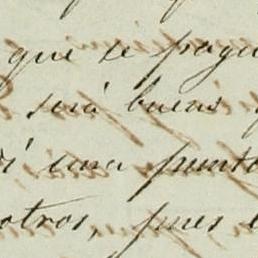 que se pague
será bueno
una punto
otros, pues